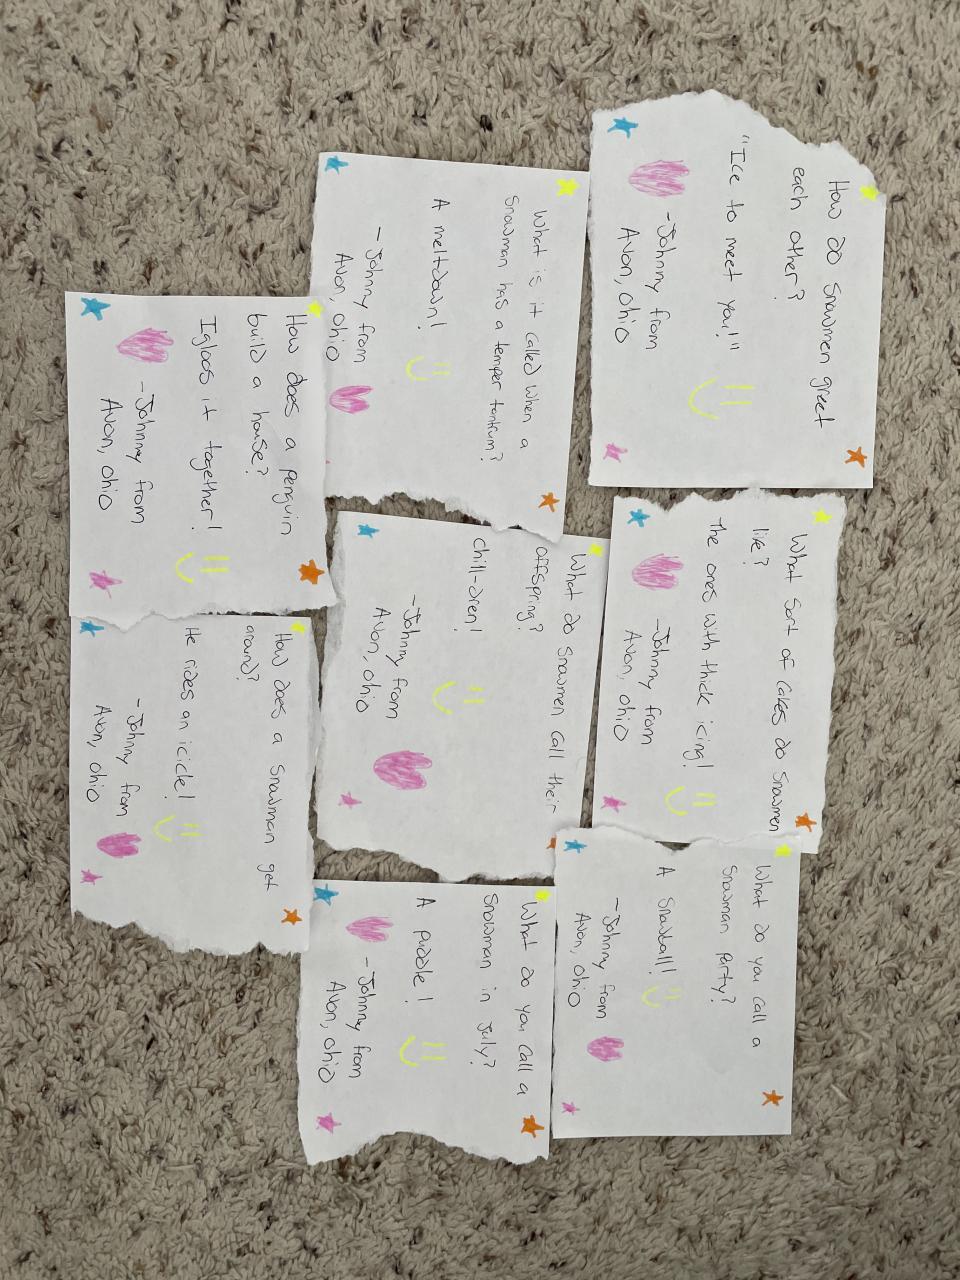 How do snowmen greet
each other?
"Ice to meet you!"
-Johnny from
Avon, Ohio
What sort of cakes do snowmen
like?
The ones with thick icing!
-Johnny from
Avon, Ohio
What do you call a
snowman party?
A snowball!
-Johnny from
Avon, Ohio
What is it called when a
snowman has a temper tantrum?
A meltdown!
-Johnny from
Avon, Ohio
What do snowmen call their
offspring?
Chill-dren!
-Johnny from
Avon, Ohio
What do you call a
snowman in July?
A puddle!
-Johnny from
Avon, Ohio
How does a penguin
build a house?
Igloos it together!
-Johnny from
Avon, Ohio
How does a snowman get
around?
He rides an icicle!
-Johnny from
Avon, Ohio